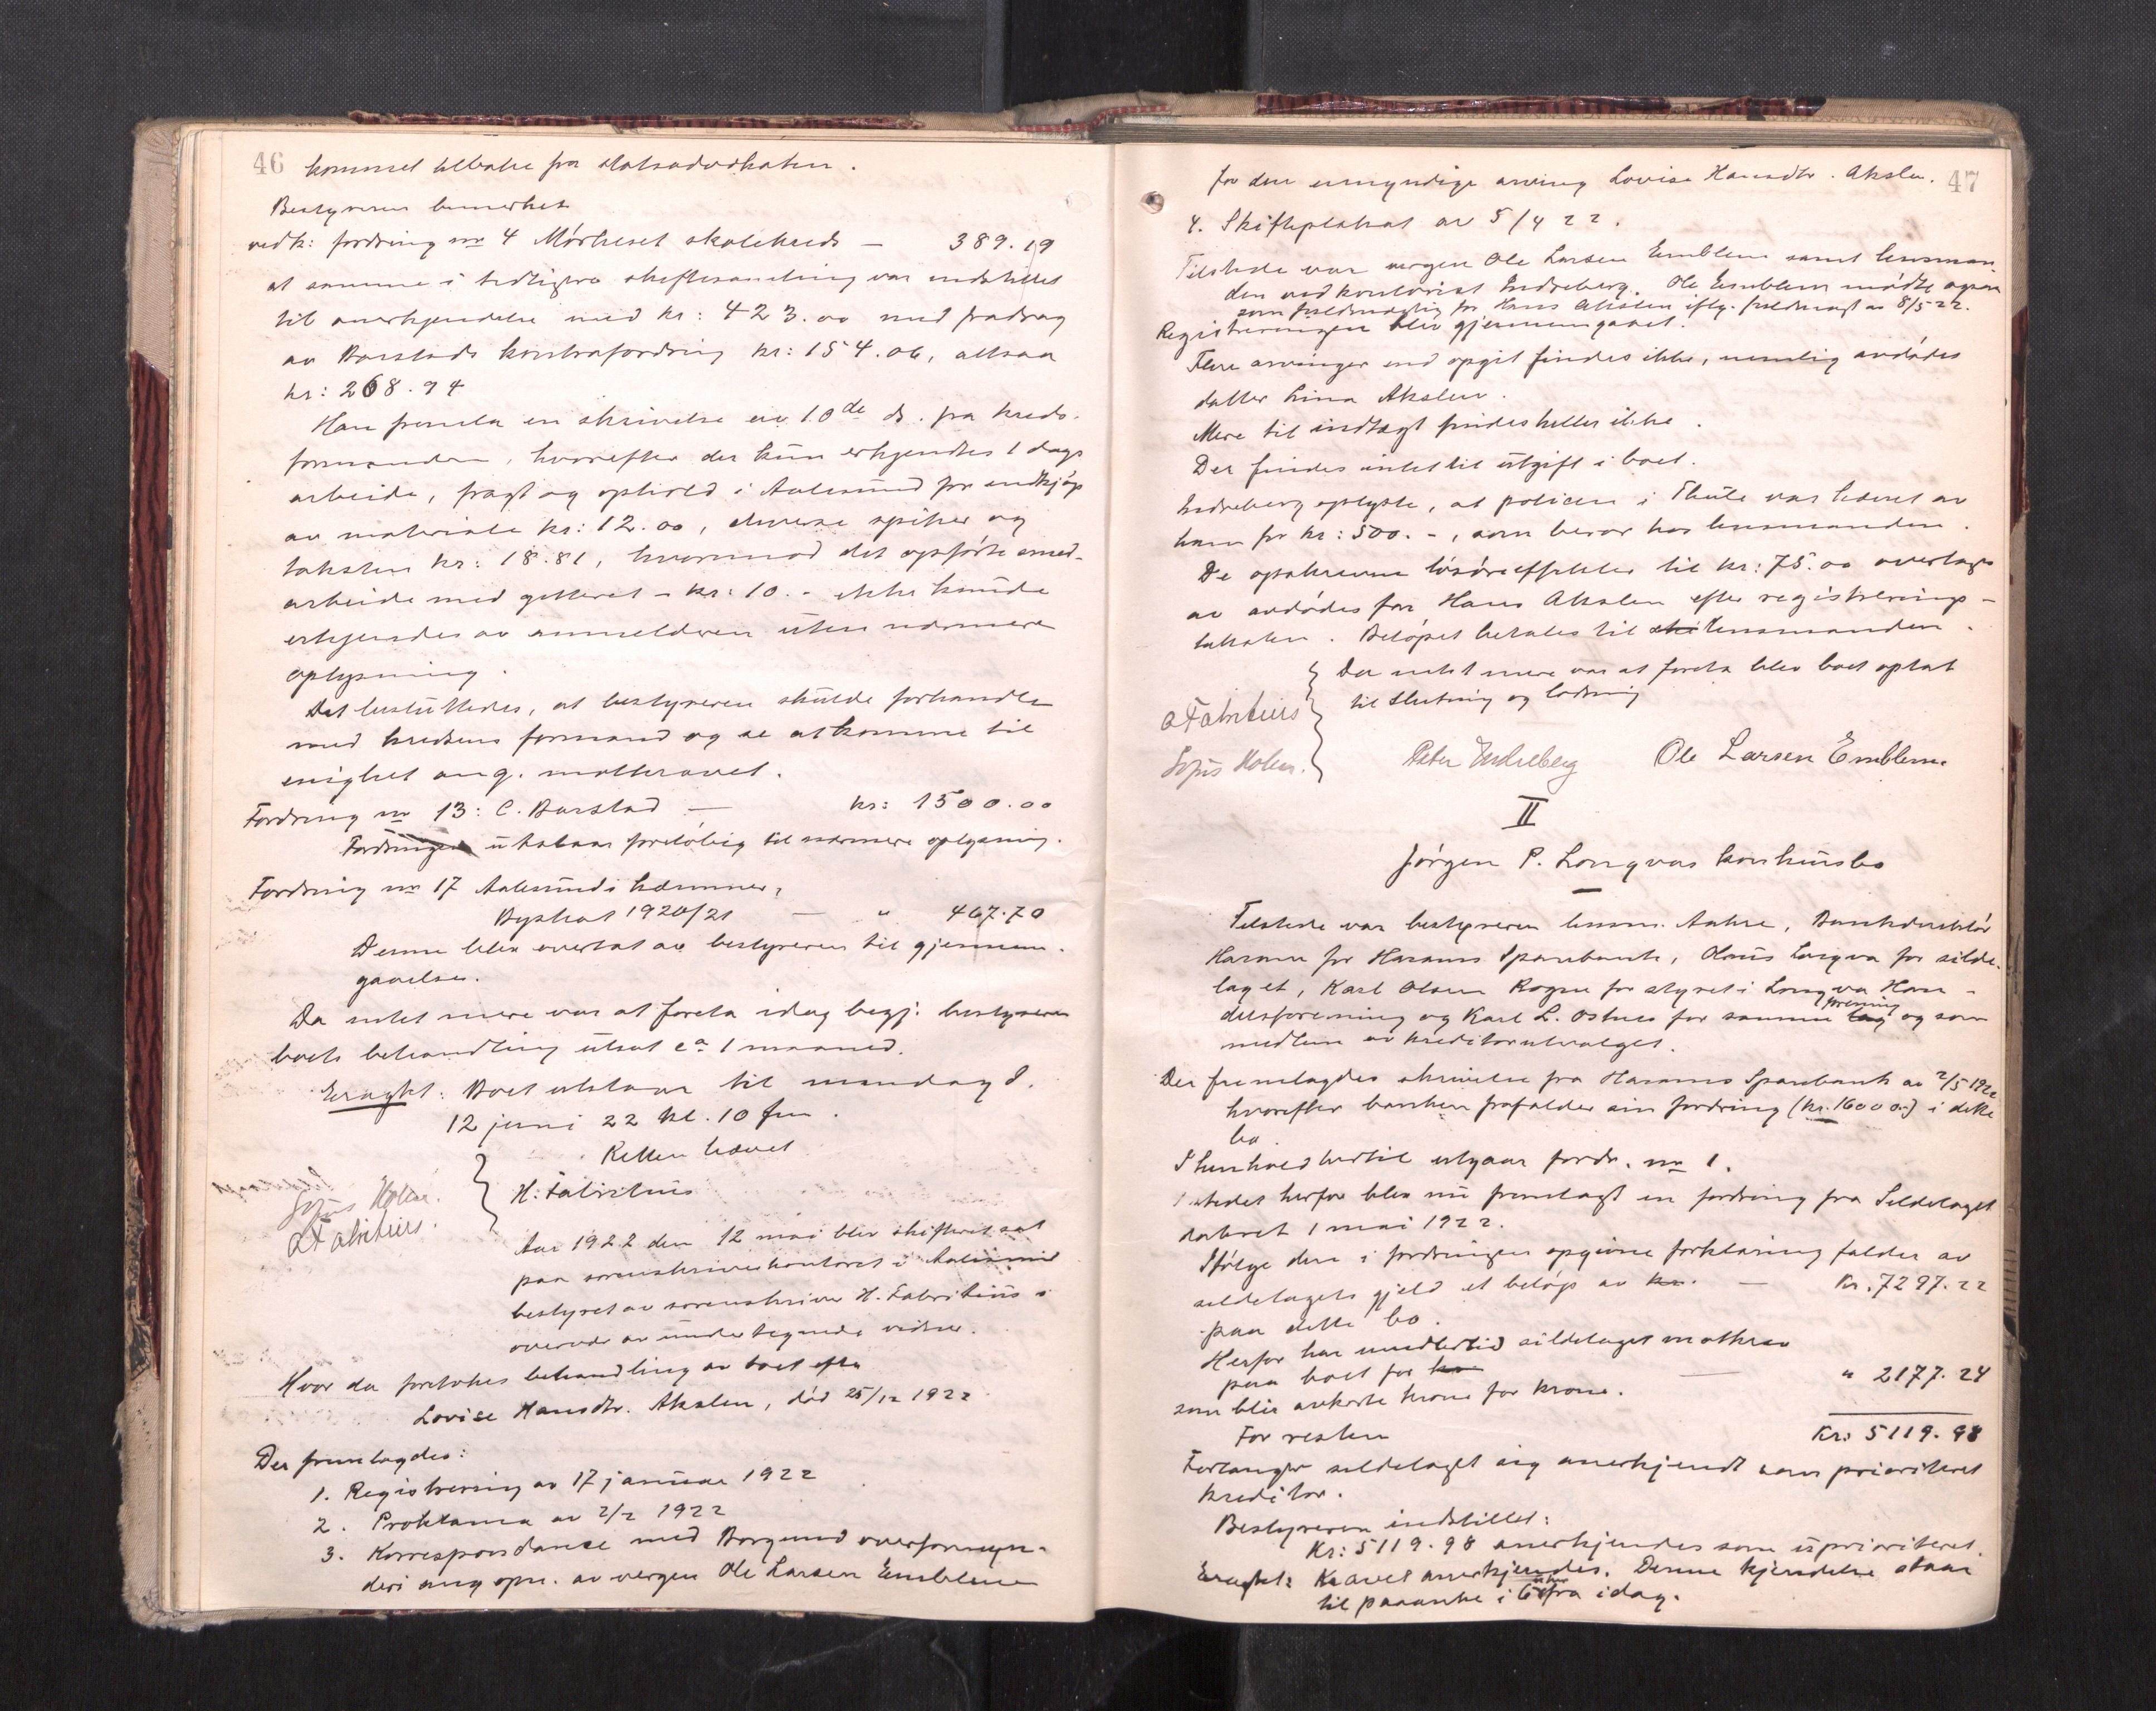 46 kommet tilbake fra statsadvokaten.
Bestyreren bemerket
vedk: fordring no 4 Mørkeset skolekreds — 389.19
at samme i tidligere skiftesamling var indstillet
til anerkjendelse med kr: 423.00 med fradrag
av Barstads kontrafordring kr: 154.06, altsaa
kr: 268.94
Han fremla en skrivelse av 10de ds. fra kreds-
formanden, hvorefter der kun erkjendtes 1 dags
arbeide, fragt og ophold i Aalesund for indkjøp
av materiale kr: 12.00, diverse spiker og
taksten kr: 18.81, hvorimod det opførte smed-
arbeide med gitteret - kr: 10.- ikke kunde
erkjendes av anmelderen uten nærmere
oplysning.
Det besluttedes, at bestyreren skulde forhandle
med kredsens formand og se at komme til
enighet ang. motkravet.
Fordring no 13: C. Barstad — kr: 1500.00
Fordringen utstaar foreløbig til nærmere oplysning.
Fordring no 17 Aalesunds kæmner,
Byskat 1920/21 — " 467.70
Denne blev overlat av bestyreren til gjennem-
gaaelse.
Da intet mere var at foreta idag begj. bestyreren
boets behandling utsat ca 1 maaned.
Eragtet: Boet utstaar til mandag d.
12 juni 22 kl. 10 fm.
Retten hævet
H. Fabritius
Sofus Holm.
A Fabritius.
Aar 1922 den 12 mai blev skifteret sat
paa sorenskriverkontoret i Aalesund
bestyret av sorenskriver H. Fabritius i
overvær av undertegnede vidner.
Hvor da foretokes behandling av boet efter
Lovise Hansdtr. Akslen, død 25/12 1922
Der fremlagdes:
1. Registrering av 17 januar 1922
2. Proklama av 2/2 1922
3. Korrespondance med Borgund overformyn-
deri ang opn. av vergen Ole Larsen Emblem
for den umyndige arving Lovise Hansdtr. Akslen. 47
4. Skifteplakat av 5/4 22.
Tilstede var vergen Ole Larsen Emblem samt lensman-
den ved kontorist Indreberg. Ole Emblem mødte ogsaa
som fuldmægtig for Hans Akslen iflg. fuldmagt av 8/5 22.
Registreringen blev gjennemgaaet.
Flere arvinger end opgit findes ikke, nemlig avdødes
datter Lina Akslen.
Mere til indtægt findes heller ikke.
Der findes intet til utgift i boet.
Indreberg oplyste, at policen i Thule var hævet av
ham for kr: 500.-, som beror hos lensmanden.
De opskrevne løsøreeffekter til kr: 75.00 overtages
av avdødes far Hans Akslen efter registrerings-
taksten. Beløpet betales til ski lensmanden.
Da intet mere var at foreta blev boet optat
til slutning og lodning
A Fabritius
Sofus Holm.
Peter Indreberg Ole Larsen Emblem.
II
Jørgen P. Longvas konkursbo
Tilstede var bestyreren lensm. Aakre, Bankdirektør
Haram for Harams Sparebank, Knus Longva for silde-
laget, Karl Olsen Rogne for styret i Longva Han-
delsforening og Karl L. Ostnes for samme lag forening og som
medlem av kreditorutvalget.
Der fremlagdes skrivelse fra Harams Sparebank av 2/5 1922
hvorefter banken frafalder sin fordring (kr. 16000.-) i dette
bo.
I henhold hertil utgaar fordr. no 1.
Istedet herfor blev nu fremlagt en fordring fra Sildelaget
datert 1 mai 1922.
Ifølge den i fordringen opgivne forklaring falder av
sildelagets gjeld et beløp av kr. — Kr. 7297.22
paa dette bo.
Herfor har imidlertid sildelaget motkrav
paa boet for kr — " 2177.24
som blir avkorte krone for krone.
For resten Kr: 5119.98
Forlanger sildelaget sig anerkjendt som prioriteret
kreditor.
Bestyreren indstillet:
Kr: 5119.98 anerkjendes som uprioriteret.
Eragtet: Kravet anerkjendes. Denne kjendelse staar
til paaanke i 6 uker fra idag.